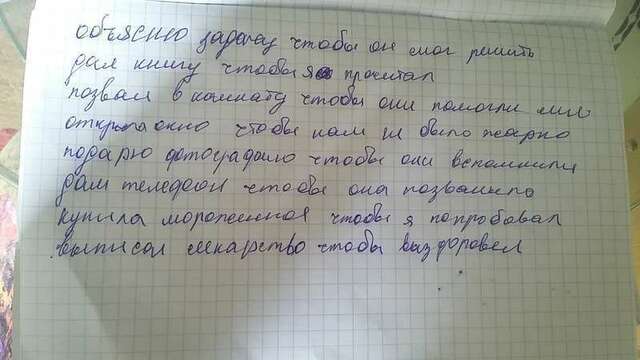 объясню задачу чтобы он смог решить
дал книгу чтобы я прочитал
позвал в комнату чтобы они помогли ему
открыл окно чтобы нам не было жарко
подарю фотографию чтобы они вспомнили
дам телефон чтобы она позвонила
купила мороженное чтобы я попробовал
выписал лекарство чтобы выздоровел